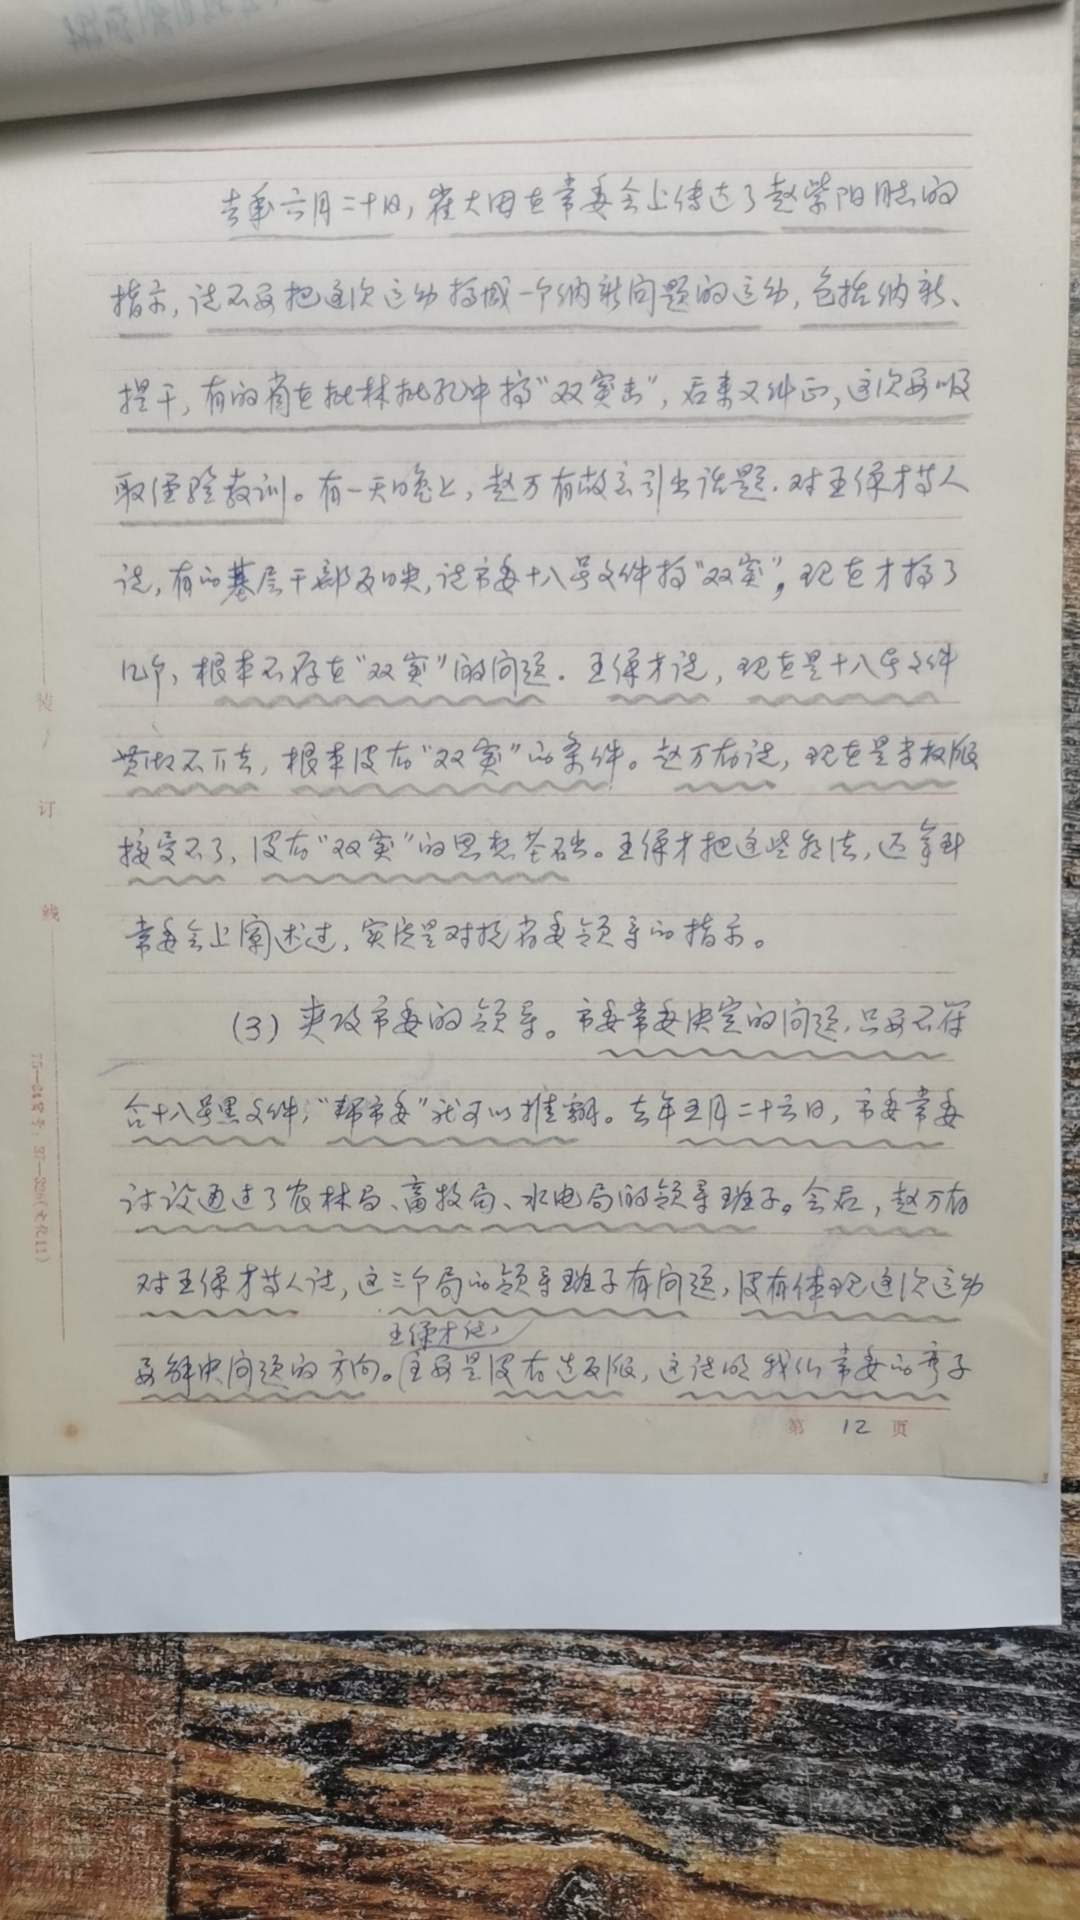 去年六月二十日，崔大田在常委会上传达了赵紫阳同志的
指示，说不要把这次运动搞成一个纳新问题的运动，包括纳新、
提干，有的省在批林批孔中搞“双突击”，后来又纠正，这次要吸
取经验教训。有一天晚上，赵万有故意引出话题，对王保才等人
说，有的基层干部反映，说市委十八号文件搞“双突”，现在才搞了
几个，根本不存在“双突”的问题．王保才说，现在是十八号文件
贯彻不下去，根本没有“双突”的条件。赵万有说，现在是当权派
接受不了，没有“双突”的思想基础。王保才把这些看法，还拿到
常委会上阐述过，实际是对抗省委领导的指示。
(3) 夹攻市委的领导。市委常委决定的问题，只要不符
合十八号黑文件，“帮市委”就可以推翻。去年五月二十六日，市委常委
讨论通过了农林局、畜牧局、水电局的领导班子。会后，赵万有
对王保才等人说，这三个局的领导班子有问题，没有体现这次运动
王保才说，
要解决问题的方向。主要是没有造反派，这说明我们常委的弯子
装
订
线
第 12 页